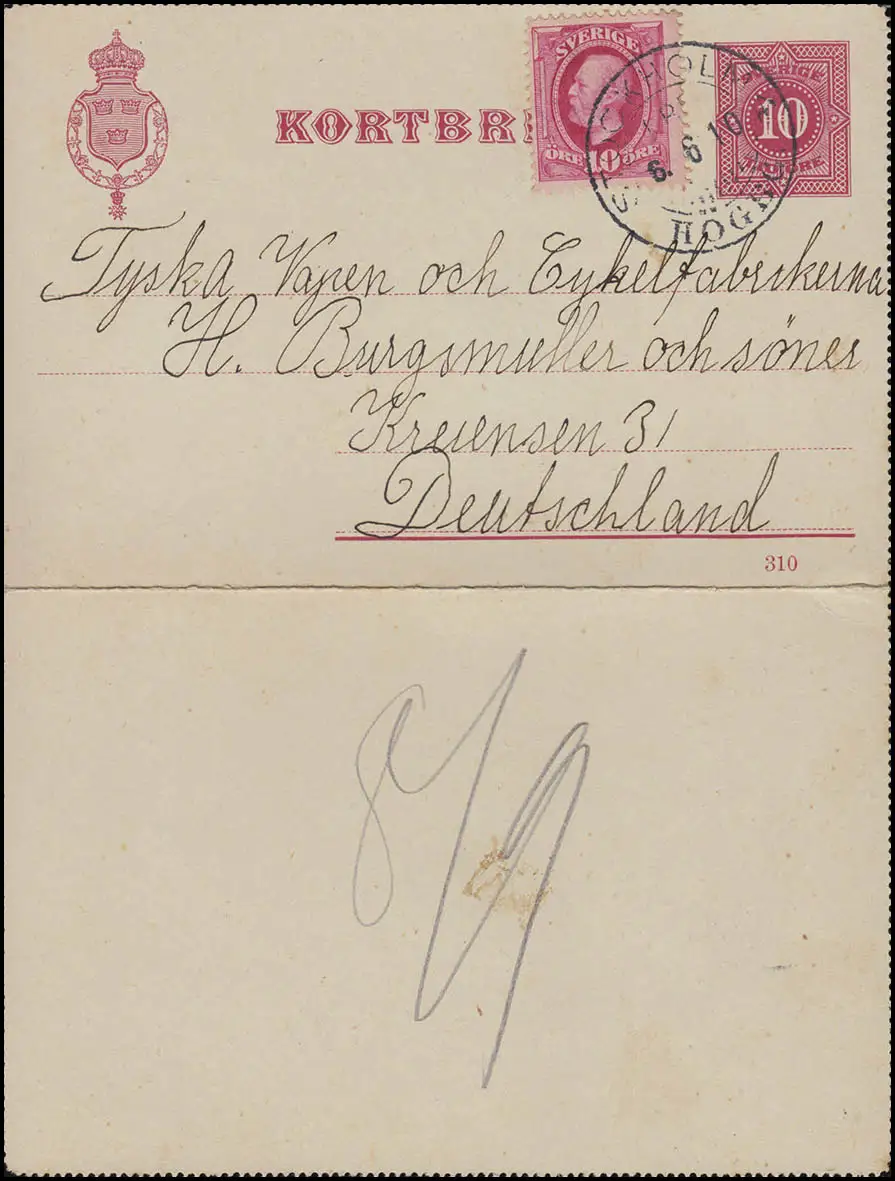 KORTBR
SVERIGE
ÖRE 10 ÖRE
10
STOCKHOLM
6. 8 10
HÖGB
Tyska Vapen och Cykelfabrikerna
H. Burgsmuller och söner
Kreiensen 31
Deutschland
310